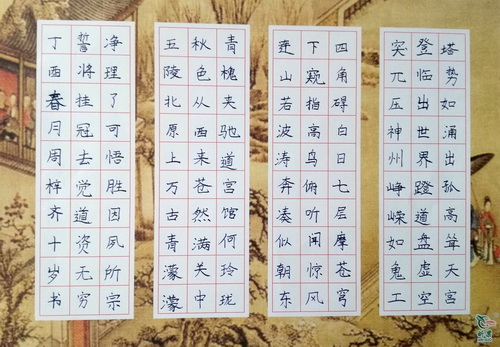 塔势如涌出孤高耸天宫
登临出世界蹬道盘虚空
突兀压神州峥嵘如鬼工
四角碍白日七层摩苍穹
下窥指高鸟俯听闻惊风
连山若波涛奔凑似朝东
青槐夹驰道宫馆何玲珑
秋色从西来苍然满关中
五陵北原上万古青濛濛
净理了可悟胜因夙所宗
誓将挂冠去觉道资无穷
丁酉春月周梓齐十岁书